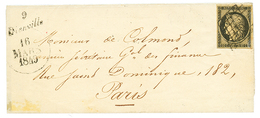 9
Dienville
16
MARS
1849
Monsieur de Colmond,
Secrétaire Gal des finances
Rue Saint Dominique, 182,
Paris